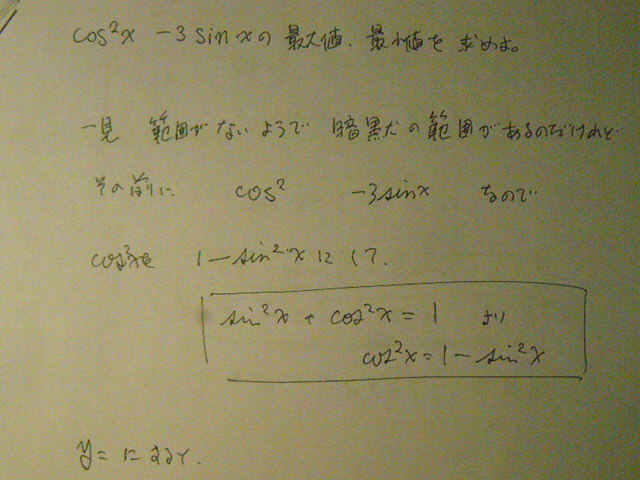 cos²x -3 sin xの 最大値、最小値を 求めよ。
一見 範囲が ないようで 暗黙の範囲があるのだけれど
その前に cos² -3sinx なので
cos²xを 1-sin²xにして、
sin²x + cos²x = 1 より
cos²x = 1 - sin²x
y= にすると、